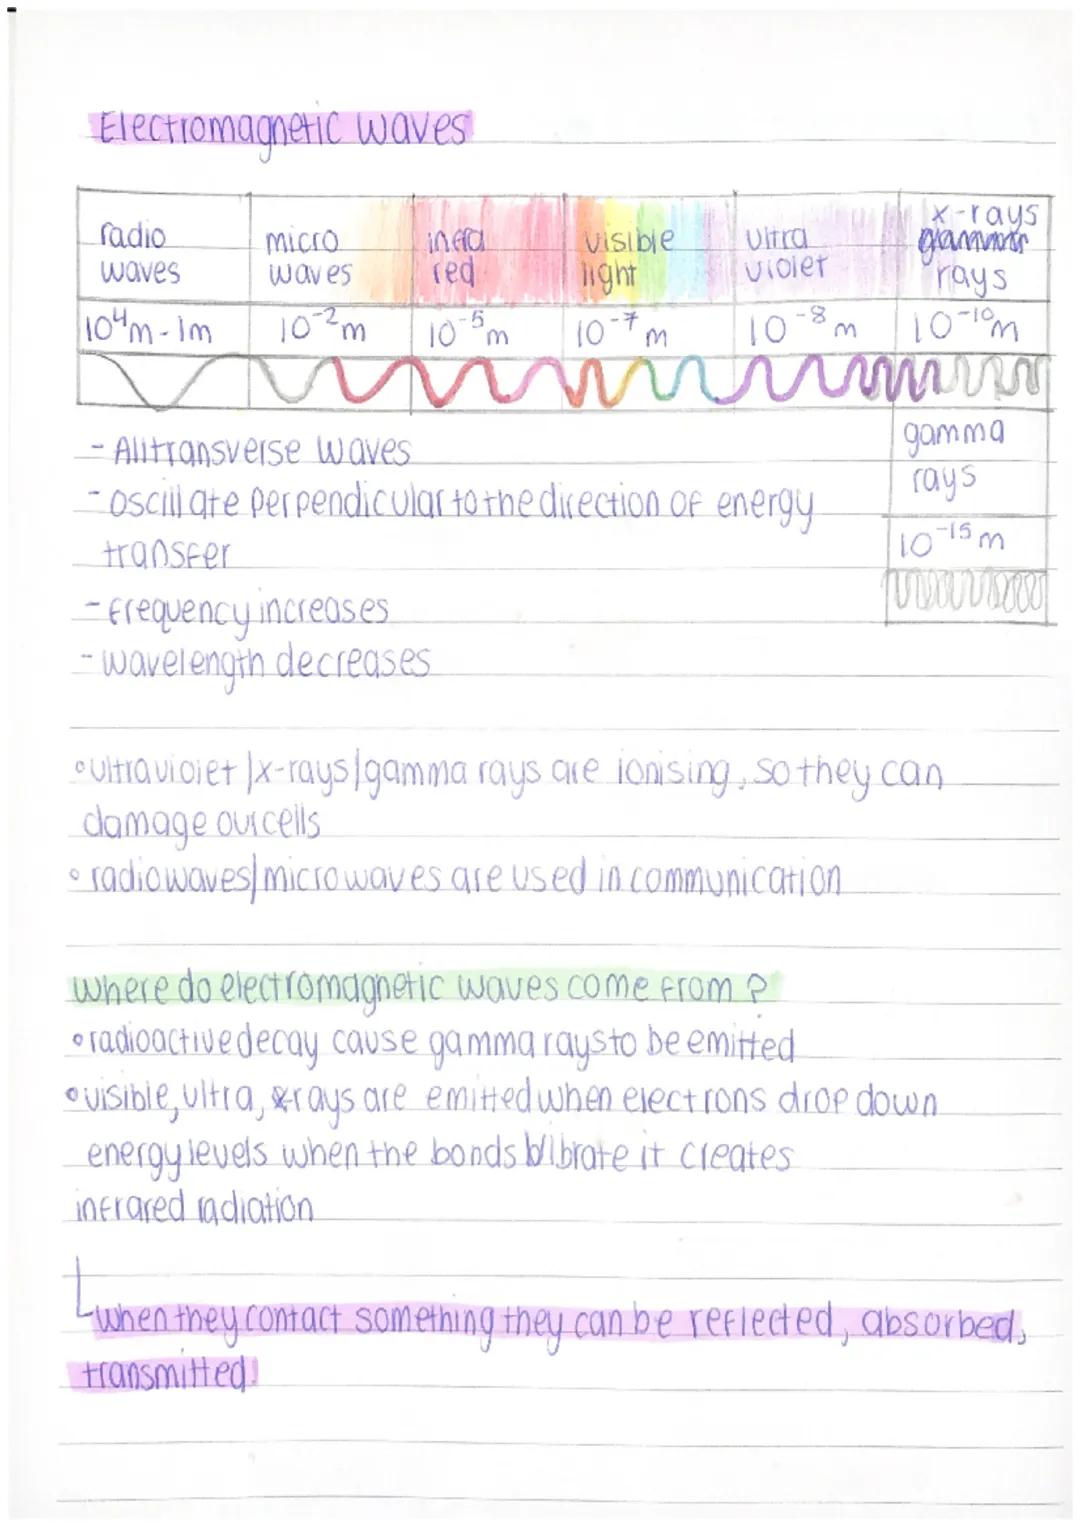 Electromagnetic waves
radio waves
micro waves
infra red
visible light
ultra violet
x-rays
gamma rays
10⁴m-1m
10⁻²m
10⁻⁵m
10⁻⁷m
10⁻⁸m
10⁻¹⁰m
gamma rays
10⁻¹⁵m
- All transverse waves
- oscillate perpendicular to the direction of energy
transfer
- frequency increases
- wavelength decreases
• ultraviolet/x-rays/gamma rays are ionising, so they can
damage our cells
• radiowaves/microwaves are used in communication
where do electromagnetic waves come from?
• radioactive decay cause gamma rays to be emitted
• visible, ultra, x-rays are emitted when electrons drop down
energy levels when the bonds vibrate it creates
infrared radiation
when they contact something they can be reflected, absorbed,
transmitted.